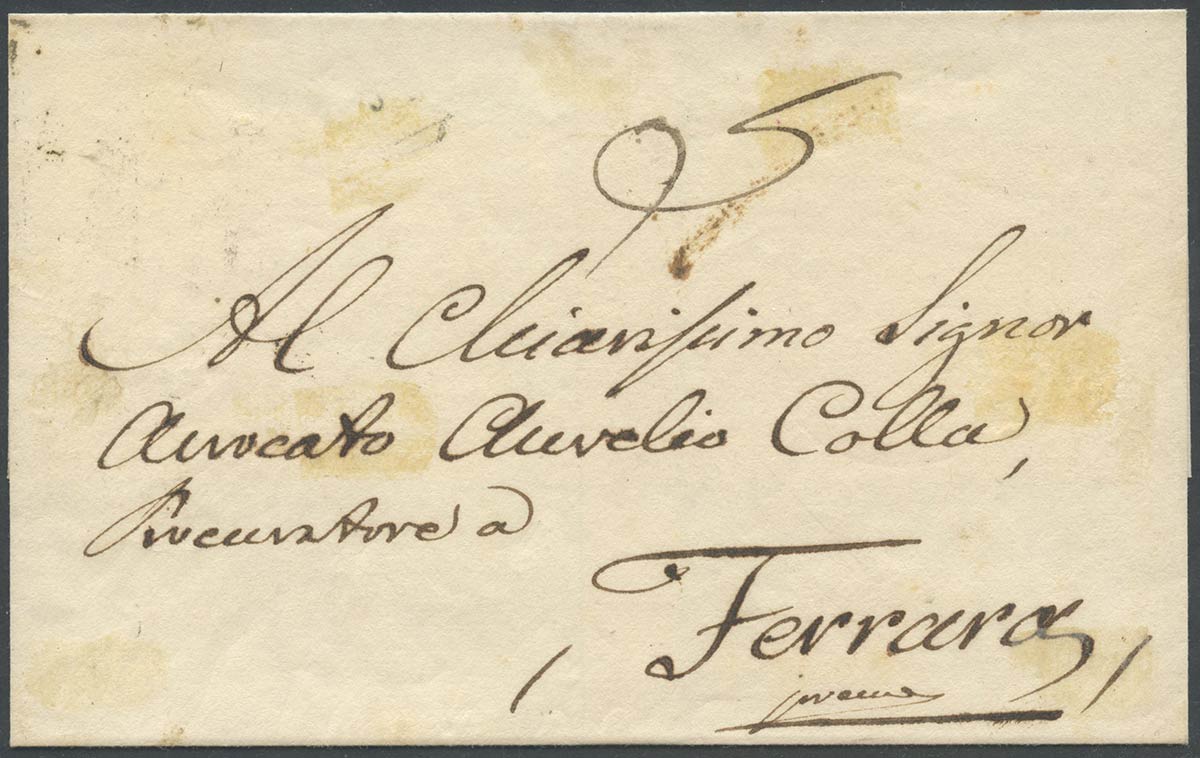 Al Chiarissimo Signor
Avvocato Aurelio Colla,
Procuratore a
Ferrara